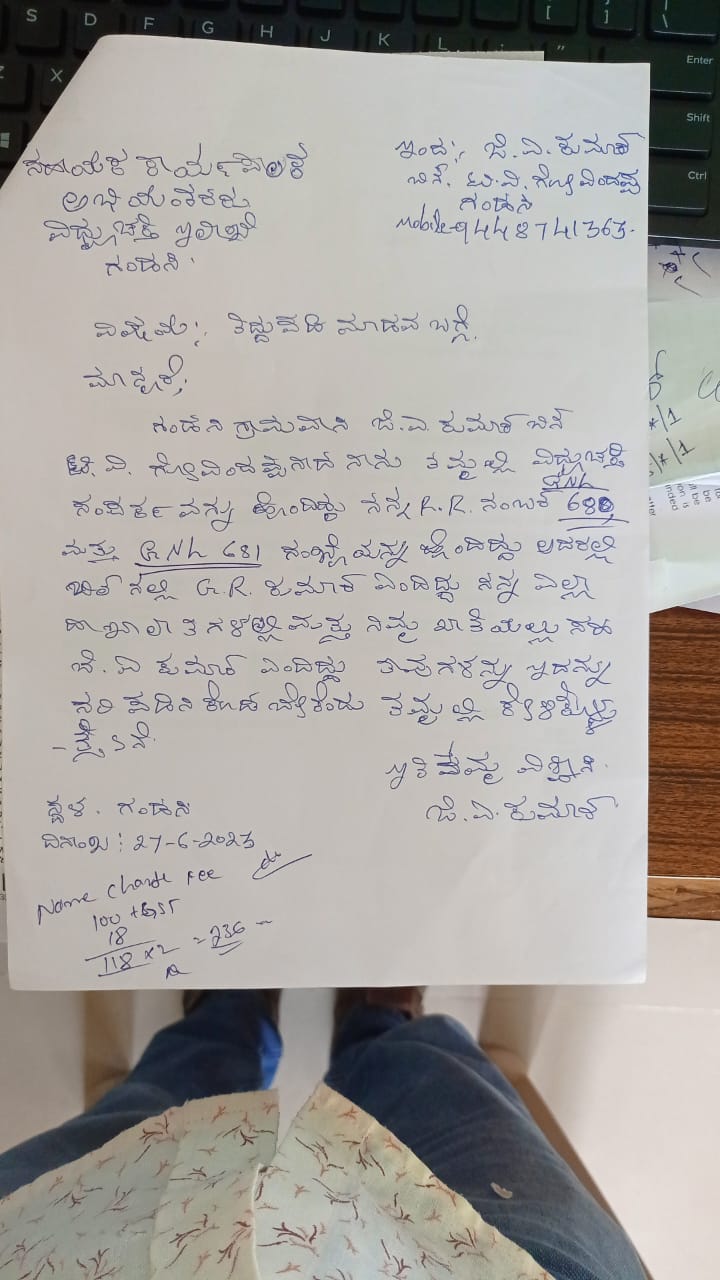 ಸಹಾಯಕ ಕಾರ್ಯಪಾಲಕ
ಅಭಿಯಂತರರು
ವಿದ್ಯುಚ್ಛಕ್ತಿ ಇಲಾಖೆ
ಗಂಡಸಿ.
ಇಂದ:, ಜಿ.ವಿ.ಕುಮಾರ್
ಬಿನ್. ಟಿ.ವಿ. ಗೋವಿಂದಪ್ಪ
ಗಂಡಸಿ
Mobile-9448741363.
ವಿಷಯ:, ತಿದ್ದುಪಡಿ ಮಾಡುವ ಬಗ್ಗೆ.
ಮಾನ್ಯರೆ,
ಗಂಡಸಿ ಗ್ರಾಮವಾಸಿ ಜಿ.ವಿ.ಕುಮಾರ್ ಬಿನ್
ಟಿ.ವಿ. ಗೋವಿಂದಪ್ಪನಾದ ನಾನು ತಮ್ಮಲ್ಲಿ ವಿದ್ಯುಚ್ಛಕ್ತಿ
ಸಂಪರ್ಕವನ್ನು ಹೊಂದಿದ್ದು ನನ್ನ R.R. ನಂಬರ್ GNL 680,
ಮತ್ತು GNL 681 ಸಂಖ್ಯೆಯನ್ನು ಹೊಂದಿದ್ದು ಅದರಲ್ಲಿ
ಬಿಲ್ ನಲ್ಲಿ G.R. ಕುಮಾರ್ ಎಂದಿದ್ದು ನನ್ನ ಎಲ್ಲಾ
ದಾಖಲಾತಿಗಳಲ್ಲಿ ಮತ್ತು ನಿಮ್ಮ ಖಾತೆಯಲ್ಲು ಸಹ
ಜಿ.ವಿ ಕುಮಾರ್ ಎಂದಿದ್ದು ತಾವುಗಳನ್ನು ಇದನ್ನು
ಸರಿಪಡಿಸಿಕೊಡಬೇಕೆಂದು ತಮ್ಮಲ್ಲಿ ಕೇಳಿಕೊಳ್ಳು
-ತ್ತೇನೆ.
ಇತಿ ತಮ್ಮ ವಿಶ್ವಾಸಿ.
ಜಿ.ವಿ.ಕುಮಾರ್
ಸ್ಥಳ. ಗಂಡಸಿ
ದಿನಾಂಖ: 27-6-2023
Name Change Fee
100 + GST
18
118 x 2 = 236